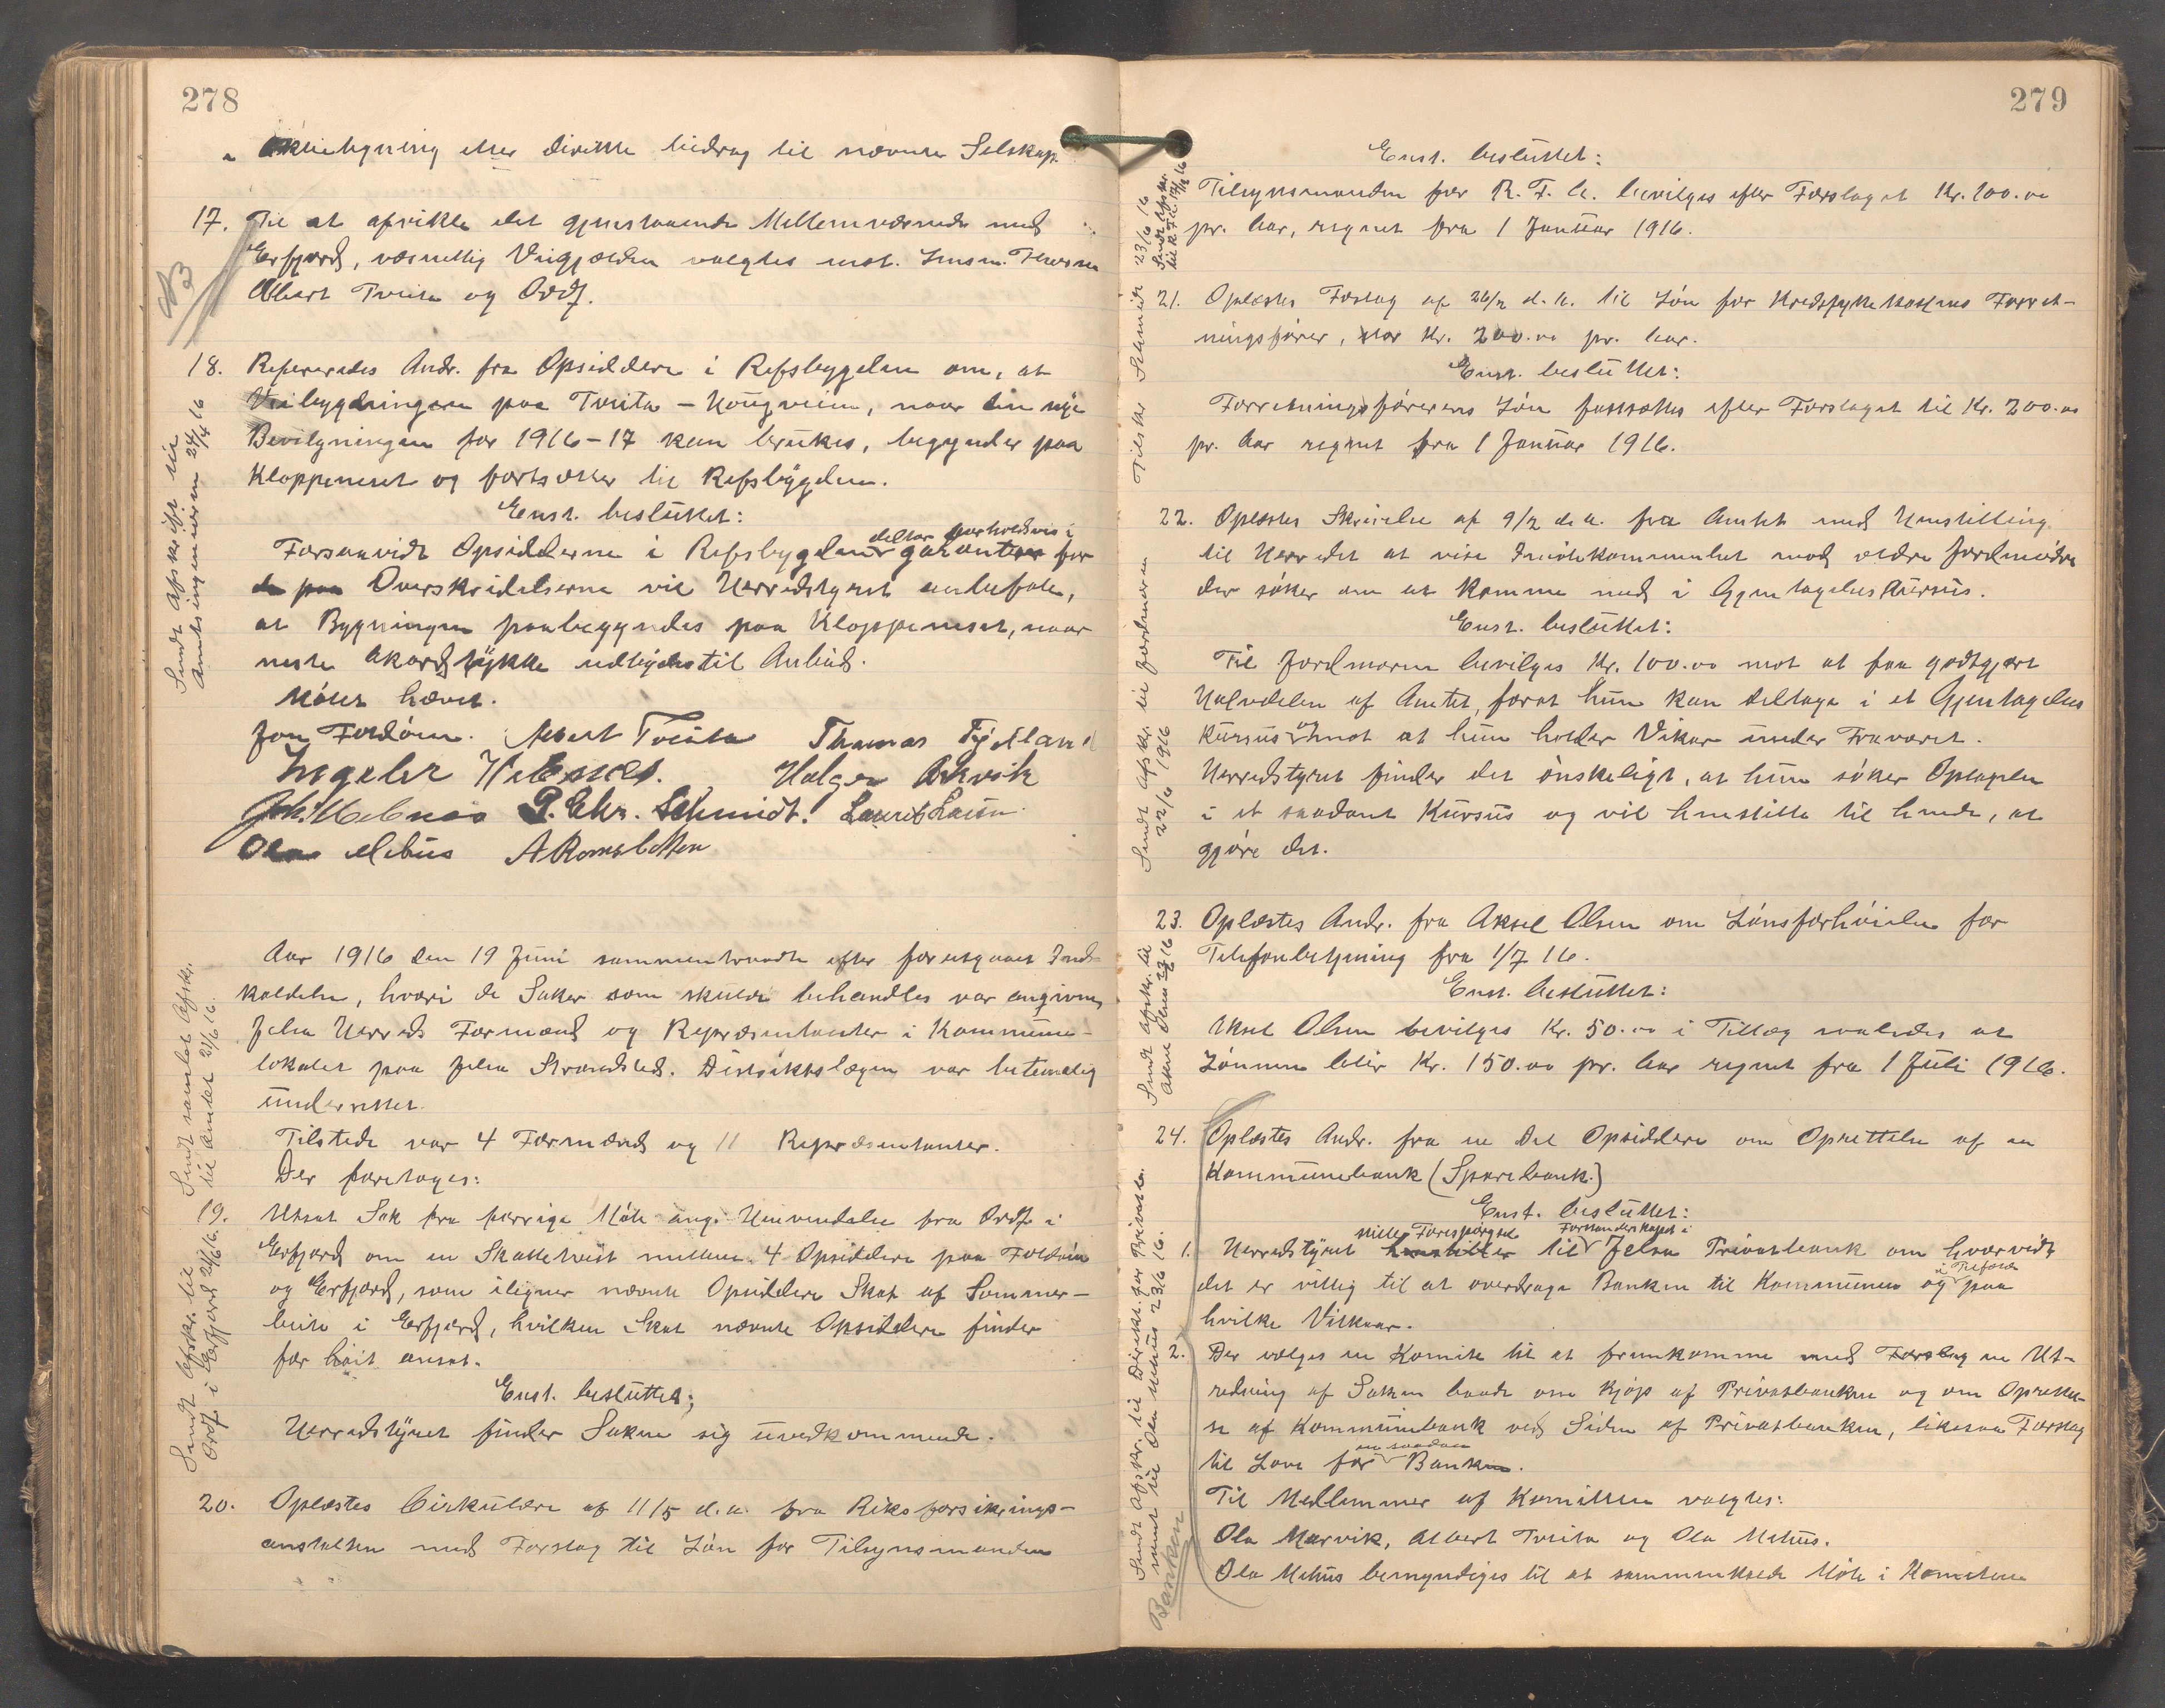 278
Aktietegning eller direkte bidrag til nævnte Selskap.
17. Til at afvikle det gjenstaaende Mellemværende med
Erfjord, væsentlig Veigjælden valgtes
Albert Tveita og Ordf.
NB
18. Refereredes Andr. fra Opsiddere i Refsbygden om, at
Veibygningen paa Tveita – Haugveien, naar den nye
Bevilgningen for 1916–17 kan brukes, begynder paa
Kloppeneset og fortsætter til Refsbygden.
Enst. besluttet:
deltar forholdsvis i
Forsaavidt Opsidderne i Refsbygden garanterer for
de paa Overskridelserne vil Herredstyret anbefale,
at Bygningen paabegyndes paa Kloppeneset, naar
neste Akordstykke udbydes til Anbud.
Møtet hævet.
Sendt Afskrift til
Amtsingeniøren 24/4 16
Jon Foldøen. Albert Tveita Thomas Fjelland
Ingebr Helgnes. Holger Askvik
Joh. Hebnes P. Chr. Schmidt. Laurits Larsen
Ola Mehus A Romsbotten
Aar 1916 den 19 Juni sammentraadte efter forutgaaet Ind-
kaldelse, hvori de Saker som skulde behandles var angivne,
Jelsa Herreds Formænd og Repræsentanter i Kommune-
lokalet paa Jelsa Strandsted. Distriktslægen var betimelig
underrettet.
Tilstede var 4 Formænd og 11 Repræsentanter.
Der foretoges:
Sendt samlet Afskr.
til Amtet 21/6 16.
19. Utsat Sak fra forrige Møte ang. Henvendelse fra Ordf. i
Erfjord om en Skattetvist mellem 4 Opsiddere paa Foldøen
og Erfjord, som iligner nævnte Opsiddere Skat af Sommer-
beite i Erfjord, hvilken Skat nævnte Opsiddere finder
for høit ansat.
Enst. besluttet:
Herredstyret finder Saken sig uvedkommende.
Sendt Afskr. til
Ordf. i Erfjord 21/6 16.
20. Oplæstes Cirkulære af 11/5 d.a. fra Riksforsikrings-
anstalten med Forslag til Løn for Tilsynsmanden
279
Enst. besluttet:
Tilsynsmanden for R. F. A. bevilges efter Forslaget Kr. 100.00
pr. Aar, regnet fra 1 Januar 1916.
21. Oplæstes Forslag af 26/2 d.a. til Løn for Kredssykekassens Forret-
ningsfører, stor Kr. 200.00 pr. Aar.
Enst. besluttet:
Forretningsførerens Løn fastsættes efter Forslaget til Kr. 200.00
pr. Aar regnet fra 1 Januar 1916.
Tilskr Schmidt 23/6 16
22. Oplæstes Skrivelse af 9/2 d.a. fra Amtet med Henstilling
til Herredet at vise Imøtekommenhet mod ældre Jordmødre
der søker om at komme med i Gjentagelseskursus.
Enst. besluttet:
Til Jordmoren bevilges Kr. 100.00 mot at faa godtgjort
Halvdelen af Amtet, forat hun kan deltage i et Gjentagelses
kursus og mot at hun holder Vikar under Fraværet.
Herredstyret finder det ønskeligt, at hun søker Optagelse
i et saadant Kursus og vil henstille til hende, at
gjøre det.
Sendt Afskr. til Jordmoren
22/6 1916
23. Oplæstes Andr. fra Aksel Olsen om Lønsforhøielse for
Telefonbetjening fra 1/7 16.
Enst. besluttet:
Aksel Olsen bevilges Kr. 50.00 i Tillæg saaledes at
Lønnen blir Kr. 150.00 pr. Aar regnet fra 1 Juli 1916.
24. Oplæstes Andr. fra en Del Opsiddere om Oprettelse af en
Kommunebank (Sparebank.)
Enst. besluttet:
stiller Forespørgsel Forstanderskapet i
1. Herredstyret henstiller til Jelsa Privatbank om hvorvidt
det er villig til at overdrage Banken til Kommunen og i Tilfælde paa
hvilke Vilkaar.
2. Der vælges en Komite til at fremkomme med Forslag en Ut-
redning af Saken baade om Kjøp af Privatbanken og om Oprettel-
se af Kommunebank ved Siden af Privatbanken, likesaa Forslag
en saadan
til Love for Banken.
Til Medlemmer af Komiteen valgtes:
Ola Marvik, Albert Tveita og Ola Mehus.
Ola Mehus bemyndiges til at sammenkalde Møte i Komiteen
Sendt Afskr. til Direkt. for Privatba.
samt til Ola Mehus 23/6 16.
Banken